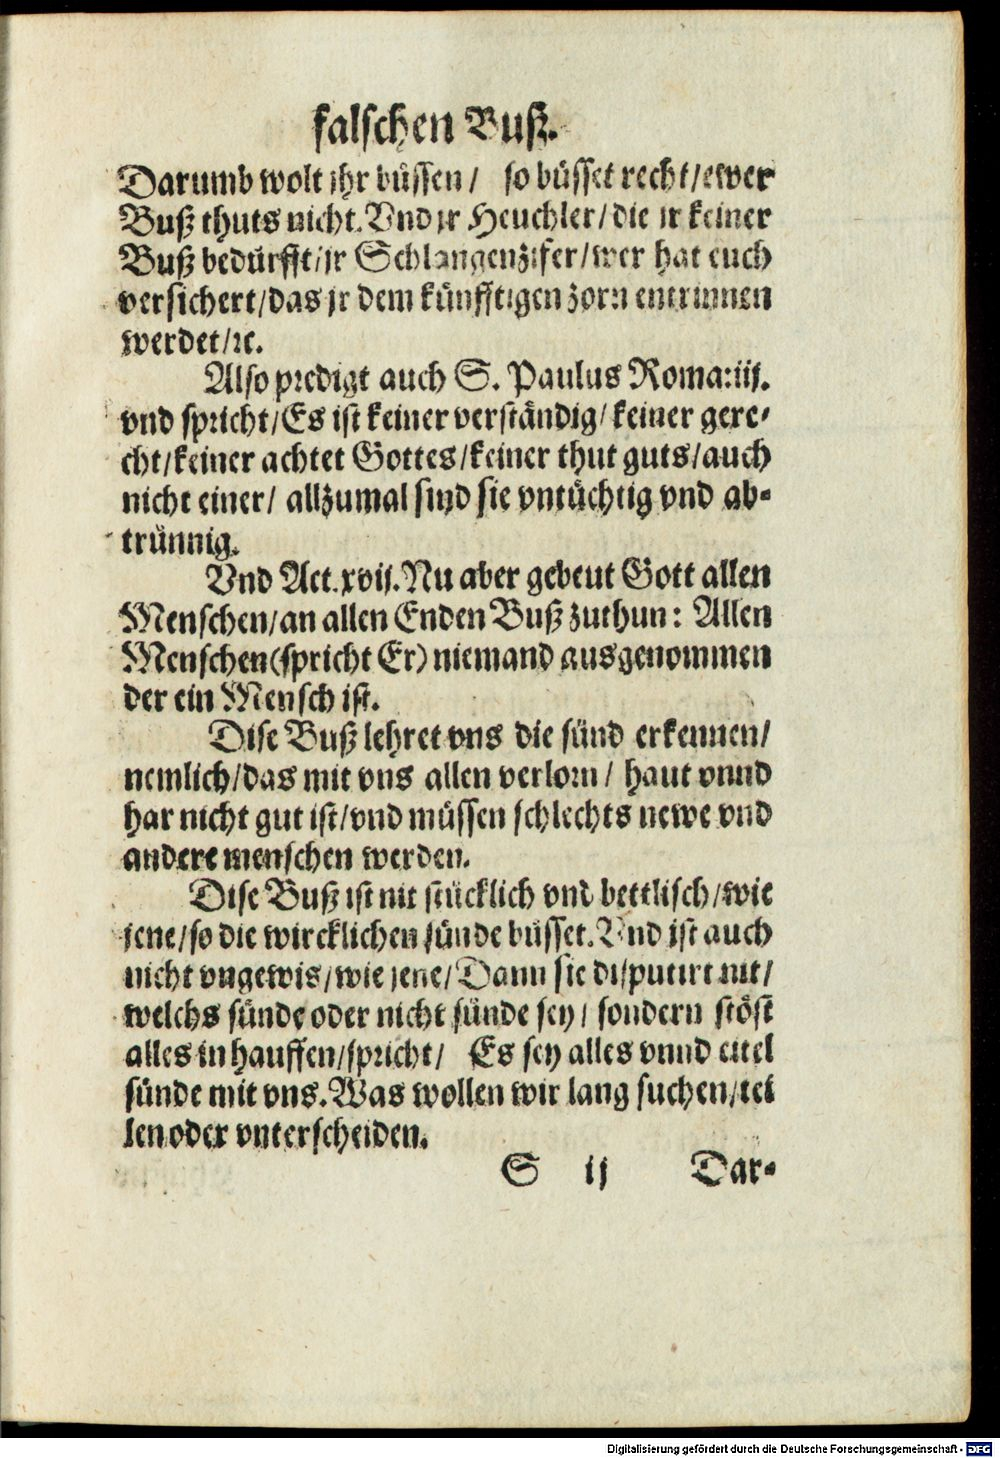 falschen Buß.
Darumb wolt jhr büssen/ so büsset recht/ewer
Buß thuts nicht. Vnd jr Heuchler/die jr keiner
Buß bedürfft/jr Schlangenzifer/wer hat euch
versichert/das jr dem künfftigen zorn entrinnen
werdet/ꝛc.
Also predigt auch S. Paulus Roma:iij.
vnd spricht/Es ist keiner verständig/keiner gere-
cht/keiner achtet Gottes/keiner thut guts/auch
nicht einer/ allzumal sind sie vntüchtig vnd ab-
trünnig.
Vnd Act. xvij. Nu aber gebeut Gott allen
Menschen/an allen Enden Buß zuthun: Allen
Menschen(spricht Er) niemand ausgenommen
der ein Mensch ist.
Dise Buß lehret vns die sünd erkennen/
nemlich/das mit vns allen verlorn/ haut vnnd
har nicht gut ist/vnd müssen schlechts newe vnd
andere menschen werden.
Dise Buß ist nit stücklich vnd bettlisch/wie
jene/so die wircklichen sünde büsset. Vnd ist auch
nicht vngewis/wie jene/Dann sie disputirt nit/
welchs sünde oder nicht sünde sey/ sondern stöst
alles in hauffen/spricht/ Es sey alles vnnd eitel
sünde mit vns. Was wollen wir lang suchen/tei
len oder vnterscheiden.
S ij Dar-
Digitalisierung gefördert durch die Deutsche Forschungsgemeinschaft - DFG